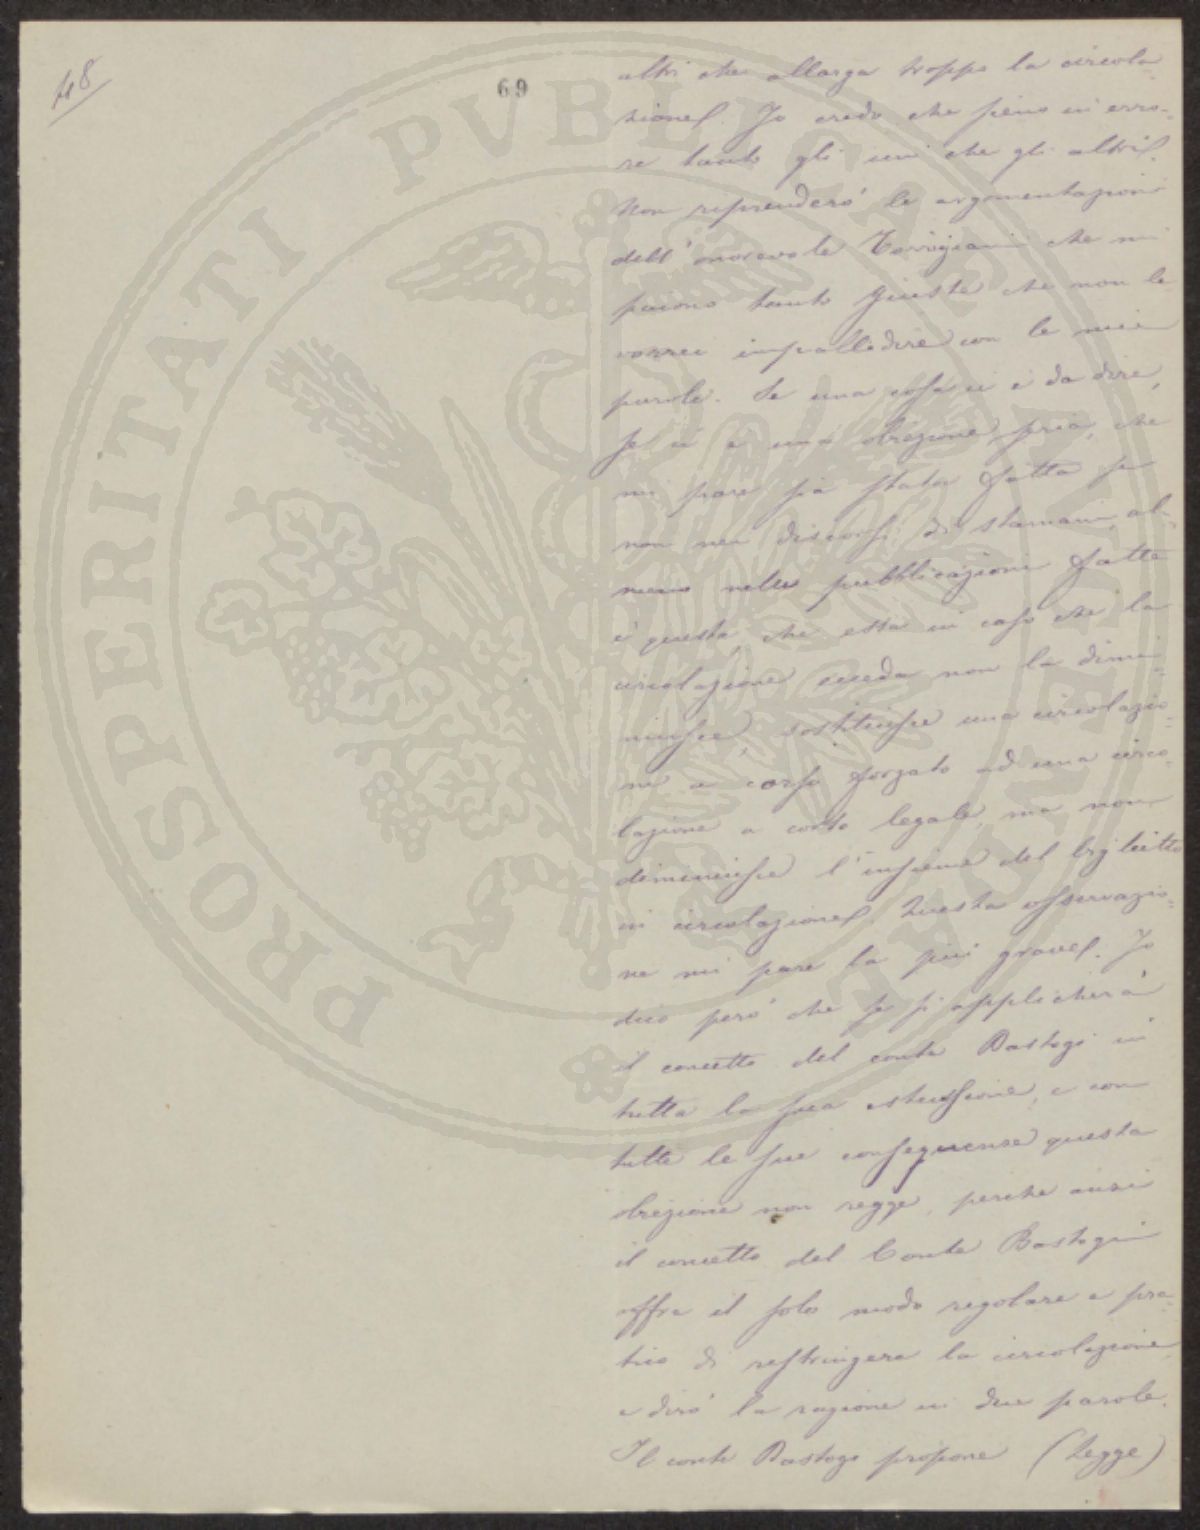 48
69
altri che allarga troppo la circola
zione. Io credo che sieno in erro-
re tanto gli uni che gli altri.
Non riprenderò le argomentazioni
dell'onorevole Torrigiani che mi
paiono tanto giuste che non le
vorrei impallidire con le mie
parole. Se una cosa vi è da dire,
se vi è una obiezione seria, che
mi pare sia stata fatta se
non nei discorsi di stamani, al-
meno nelle pubblicazioni fatte
è questa, che essa in caso che la
circolazione ecceda non la dimi-
nuisce, sostituisce una circolazio-
ne a corso forzato ad una circo-
lazione a corso legale, ma non
diminuisce l'insieme del biglietto
in circolazione. Questa osservazio-
ne mi pare la più grave. Io
dico però che se si applicherà
il concetto del conte Bastogi in
tutta la sua estensione, e con
tutte le sue conseguenze questa
obiezione non regge, perchè anzi
il concetto del Conte Bastogi
offre il solo modo regolare e pra-
tico di restringere la circolazione
e dirò la ragione in due parole.
Il conte Bastogi propone (legge)
PROSPERITATI PVBLICAE